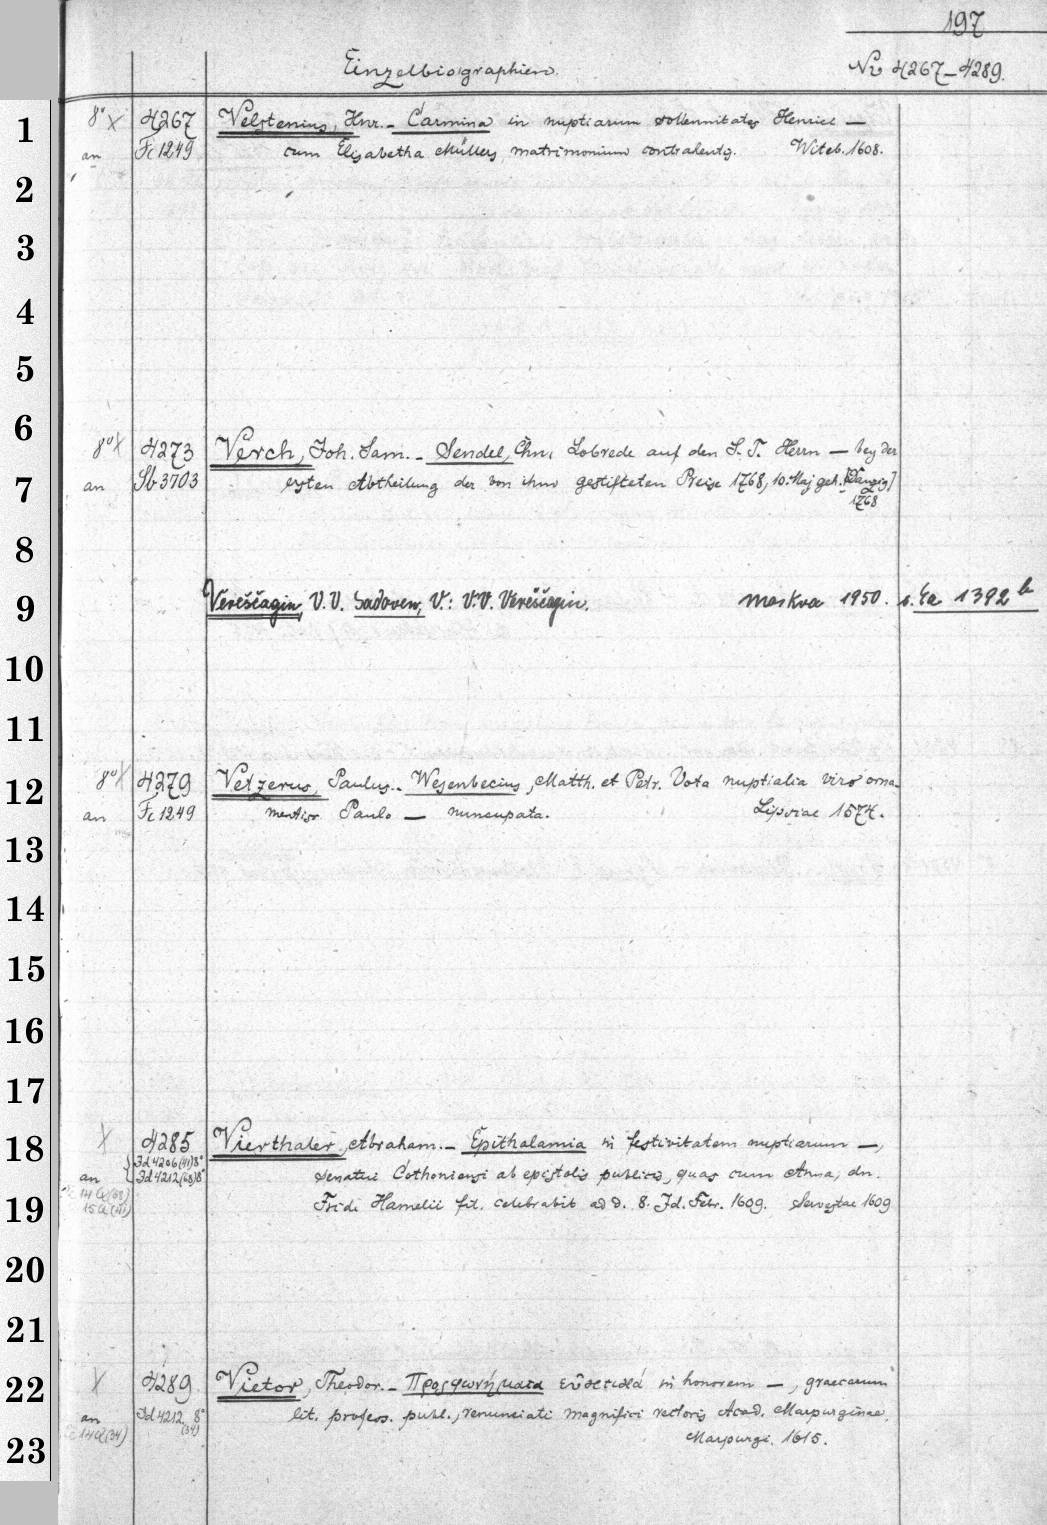 197
Einzelbiographien.
No 4267-4289.
1
8° X 4267 Velstenius, Hnr. - Carmina in nuptiarum sollennitatem Henrici —
an Fc 1249 cum Elisabetha Müllers matrimonium contrahentis. Witeb. 1608.
2
3
4
5
6
8° X 4273 Verch, Joh. Sam. - Sendel, Chn. Lobrede auf den S. T. Herrn — bey der
7
an Sb 3703 ersten Abtheilung der von ihm gestifteten Preise 1768, 10. Maj geh. [Danzig]
1768
8
9
Vereščagin, V. V. Sadoven, V.: V. V. Vereščagin. Moskva 1950. s. Ca 1392 b
10
11
12
8° X 4279 Vetzerus, Paulus. - Wesenbecius, Matth. et Petr. Vota nuptialia viro orna-
an Fc 1249 mentiss. Paulo — nuncupata. Lipsiae 1574.
13
14
15
16
17
18
X 4285 Vierthaler, Abraham. - Epithalamia in festivitatem nuptiarum —,
Jd 4206 (41) 8°
an Jd 4212 (68) 8° senatui Cothoniensi ab epistolis publicis, quas cum Anna, dn.
14 a (68)
19
15 a (41) Fridi Hamelii fil. celebrabit ad d. 8. Id. Febr. 1609. Servestae 1609
20
21
22
X 4289 Vietor, Theodor. - Προσφωνήματα εὐθετικά in honorem —, graecarum
an Jd 4212 8° (34) lit. profess. publ., renunciati magnifici rectoris Acad. Marpurginae.
14 a (34)
23
Marpurgi. 1615.